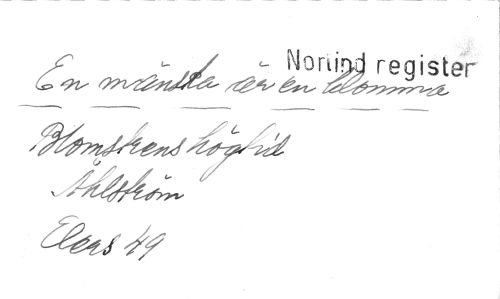 Norlind register
En mänska är en blomma
Blomstrens högtid
Ahlström
Elers 49